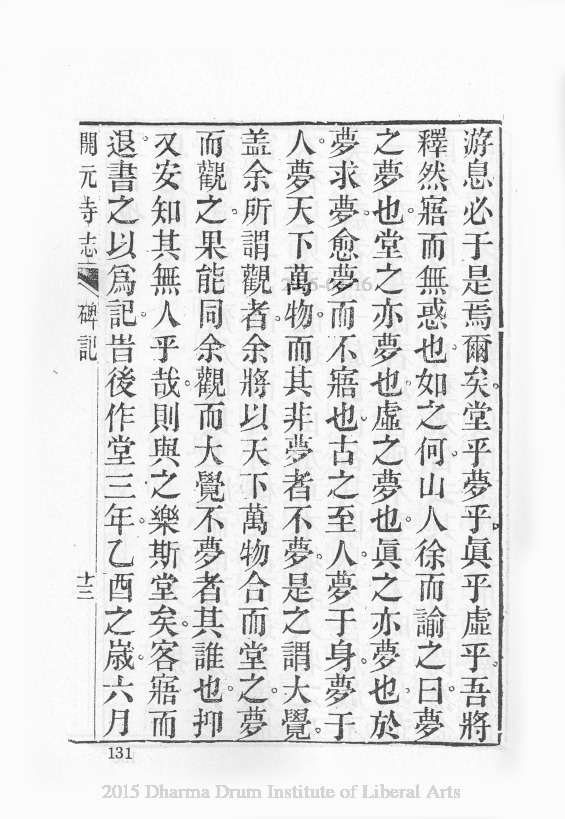 游息必于是焉爾矣。堂乎夢乎眞乎虛乎。吾將
釋然寤而無惑也。如之何。山人徐而諭之曰。夢
之夢也。堂之亦夢也。虛之夢也。眞之亦夢也。於
夢求夢。愈夢而不寤也。古之至人。夢于身。夢于
人。夢天下萬物。而其非夢者不夢。是之謂大覺。
盖余所謂觀者。余將以天下萬物合而堂之。夢
而觀之。果能同余觀而大覺不夢者其誰也。抑
又安知其無人乎哉。則與之樂斯堂矣。客寤而
退。書之以爲記。旹後作堂三年。乙酉之歲。六月
開元寺志 碑記 十三
131
2015 Dharma Drum Institute of Liberal Arts